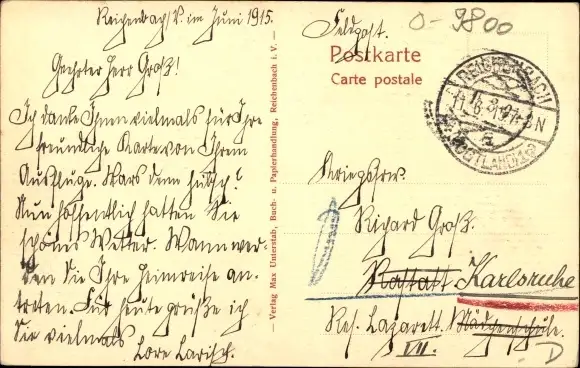 Reichenbach i/V. im Juni 1915.
Geehrter Herr Groß!
Ich danke Ihnen vielmals für Ihre
freundliche Karte von Ihrem
Ausfluge. Wars denn hübsch?
Nun hoffentlich hatten Sie
schönes Wetter. Wann wer-
den Sie Ihre Heimreise an-
treten. Für heute grüße ich
Sie vielmals
Lore Larisch.
— Verlag Max Unterstab, Buch- u. Papierhandlung, Reichenbach i. V. —
Feldpost.
0-9800
Postkarte
Carte postale
REICHENBACH
11.6.15
(VOGTLAND)
Richard Groß.
Rastatt Karlsruhe
Res. Lazarett. Mädchenschule.
VII.
D